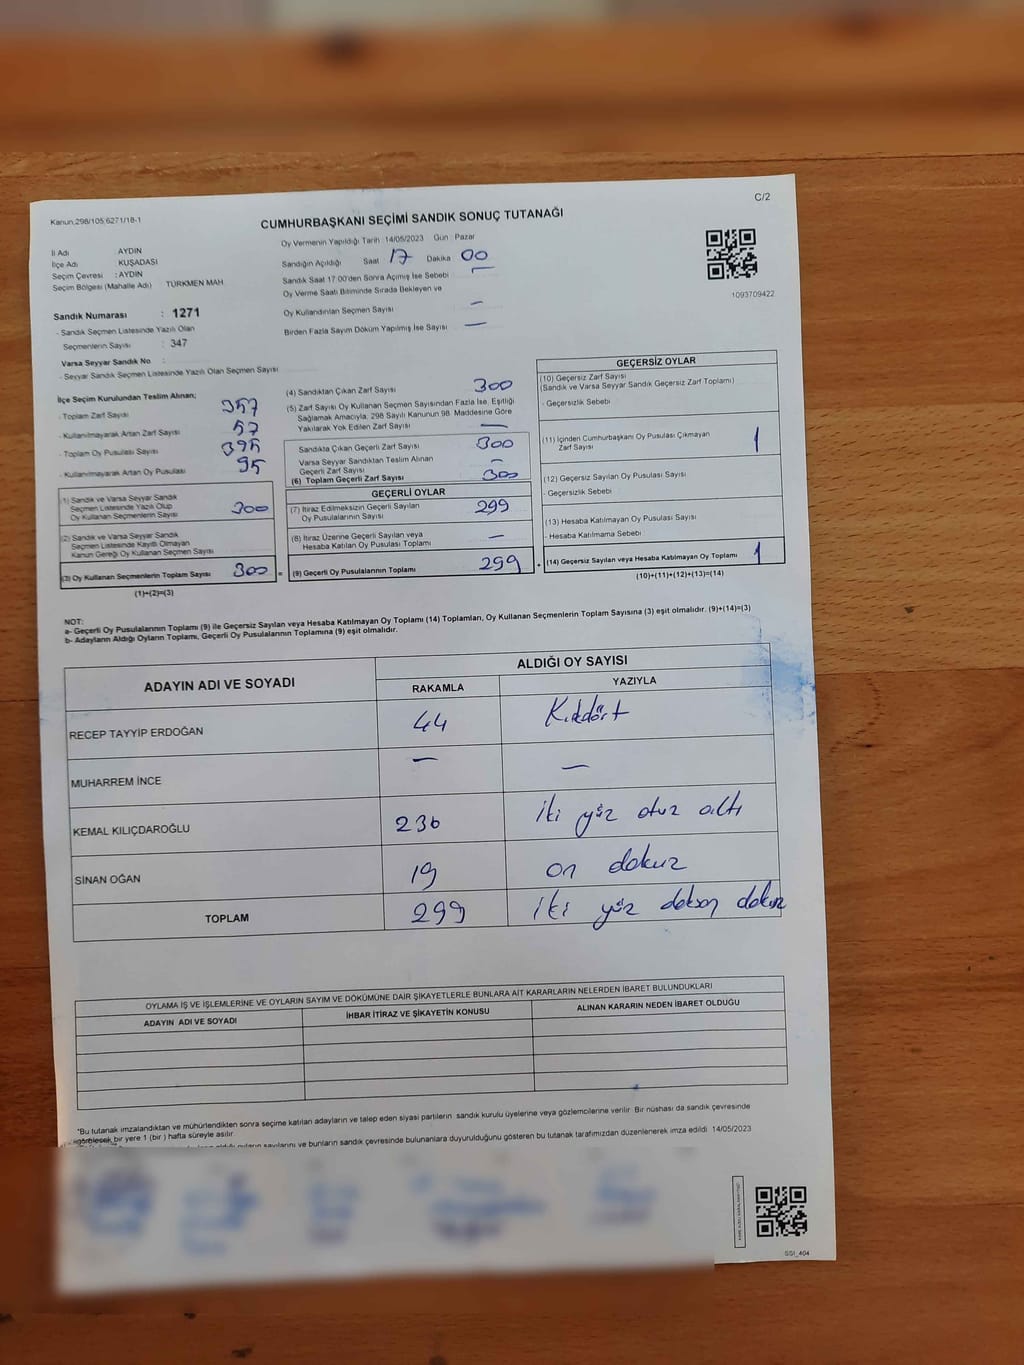 C/2
Kanun.298/105,6271/18-1
CUMHURBAŞKANI SEÇİMİ SANDIK SONUÇ TUTANAĞI
İl Adı AYDIN
İlçe Adı KUŞADASI
Seçim Çevresi : AYDIN
Seçim Bölgesi (Mahalle Adı) TÜRKMEN MAH.
Oy Vermenin Yapıldığı Tarih 14/05/2023 Gün Pazar
Sandığın Açıldığı Saat 17 Dakika 00
Sandık Saat 17:00'den Sonra Açımış İse Sebebi —
Oy Verme Saati Bitiminde Sırada Bekleyen ve
Oy Kullandırılan Seçmen Sayısı —
Birden Fazla Sayım Döküm Yapılmış İse Sayısı —
1093709422
Sandık Numarası : 1271
- Sandık Seçmen Listesinde Yazılı Olan
Seçmenlerin Sayısı : 347
Varsa Seyyar Sandık No :
- Seyyar Sandık Seçmen Listesinde Yazılı Olan Seçmen Sayısı
İlçe Seçim Kurulundan Teslim Alınan;
- Toplam Zarf Sayısı 357
- Kullanılmayarak Artan Zarf Sayısı 57
- Toplam Oy Pusulası Sayısı 395
- Kullanılmayarak Artan Oy Pusulası 95
(1) Sandık ve Varsa Seyyar Sandık
Seçmen Listesinde Yazılı Olup
Oy Kullanan Seçmenlerin Sayısı 300
(2) Sandık ve Varsa Seyyar Sandık
Seçmen Listesinde Kayıtlı Olmayan
Kanun Gereği Oy Kullanan Seçmen Sayısı
(3) Oy Kullanan Seçmenlerin Toplam Sayısı 300
(1)+(2)=(3)
(4) Sandıktan Çıkan Zarf Sayısı 300
(5) Zarf Sayısı Oy Kullanan Seçmen Sayısından Fazla İse, Eşitliği
Sağlamak Amacıyla, 298 Sayılı Kanunun 98. Maddesine Göre
Yakılarak Yok Edilen Zarf Sayısı —
Sandıkta Çıkan Geçerli Zarf Sayısı 300
Varsa Seyyar Sandıktan Teslim Alınan
Geçerli Zarf Sayısı —
(6) Toplam Geçerli Zarf Sayısı 300
GEÇERLİ OYLAR
(7) İtiraz Edilmeksizin Geçerli Sayılan
Oy Pusulalarının Sayısı 299
(8) İtiraz Üzerine Geçerli Sayılan veya
Hesaba Katılan Oy Pusulası Toplamı —
= (9) Geçerli Oy Pusulalarının Toplamı 299
GEÇERSİZ OYLAR
(10) Geçersiz Zarf Sayısı
(Sandık ve Varsa Seyyar Sandık Geçersiz Zarf Toplamı)
- Geçersizlik Sebebi
(11) İçinden Cumhurbaşkanı Oy Pusulası Çıkmayan
Zarf Sayısı 1
(12) Geçersiz Sayılan Oy Pusulası Sayısı
- Geçersizlik Sebebi
(13) Hesaba Katılmayan Oy Pusulası Sayısı
- Hesaba Katılmama Sebebi
+ (14) Geçersiz Sayılan veya Hesaba Katılmayan Oy Toplamı 1
(10)+(11)+(12)+(13)=(14)
NOT:
a- Geçerli Oy Pusulalarının Toplamı (9) ile Geçersiz Sayılan veya Hesaba Katılmayan Oy Toplamı (14) Toplamları, Oy Kullanan Seçmenlerin Toplam Sayısına (3) eşit olmalıdır. (9)+(14)=(3)
b- Adayların Aldığı Oyların Toplamı, Geçerli Oy Pusulalarının Toplamına (9) eşit olmalıdır.
ADAYIN ADI VE SOYADI ALDIĞI OY SAYISI
RAKAMLA YAZIYLA
RECEP TAYYİP ERDOĞAN 44 Kırkdört
MUHARREM İNCE — —
KEMAL KILIÇDAROĞLU 236 iki yüz otuz altı
SİNAN OĞAN 19 on dokuz
TOPLAM 299 iki yüz doksan dokuz
OYLAMA İŞ VE İŞLEMLERİNE VE OYLARIN SAYIM VE DÖKÜMÜNE DAİR ŞİKAYETLERLE BUNLARA AİT KARARLARIN NELERDEN İBARET BULUNDUKLARI
ADAYIN ADI VE SOYADI İHBAR İTİRAZ VE ŞİKAYETİN KONUSU ALINAN KARARIN NEDEN İBARET OLDUĞU
*Bu tutanak imzalandıktan ve mühürlendikten sonra seçime katılan adayların ve talep eden siyasi partilerin sandık kurulu üyelerine veya gözlemcilerine verilir. Bir nüshası da sandık çevresinde
görülecek bir yere 1 (bir ) hafta süreyle asılır.
oyların sayılarını ve bunların sandık çevresinde bulunanlara duyurulduğunu gösteren bu tutanak tarafımızdan düzenlenerek imza edildi 14/05/2023
SSI_404